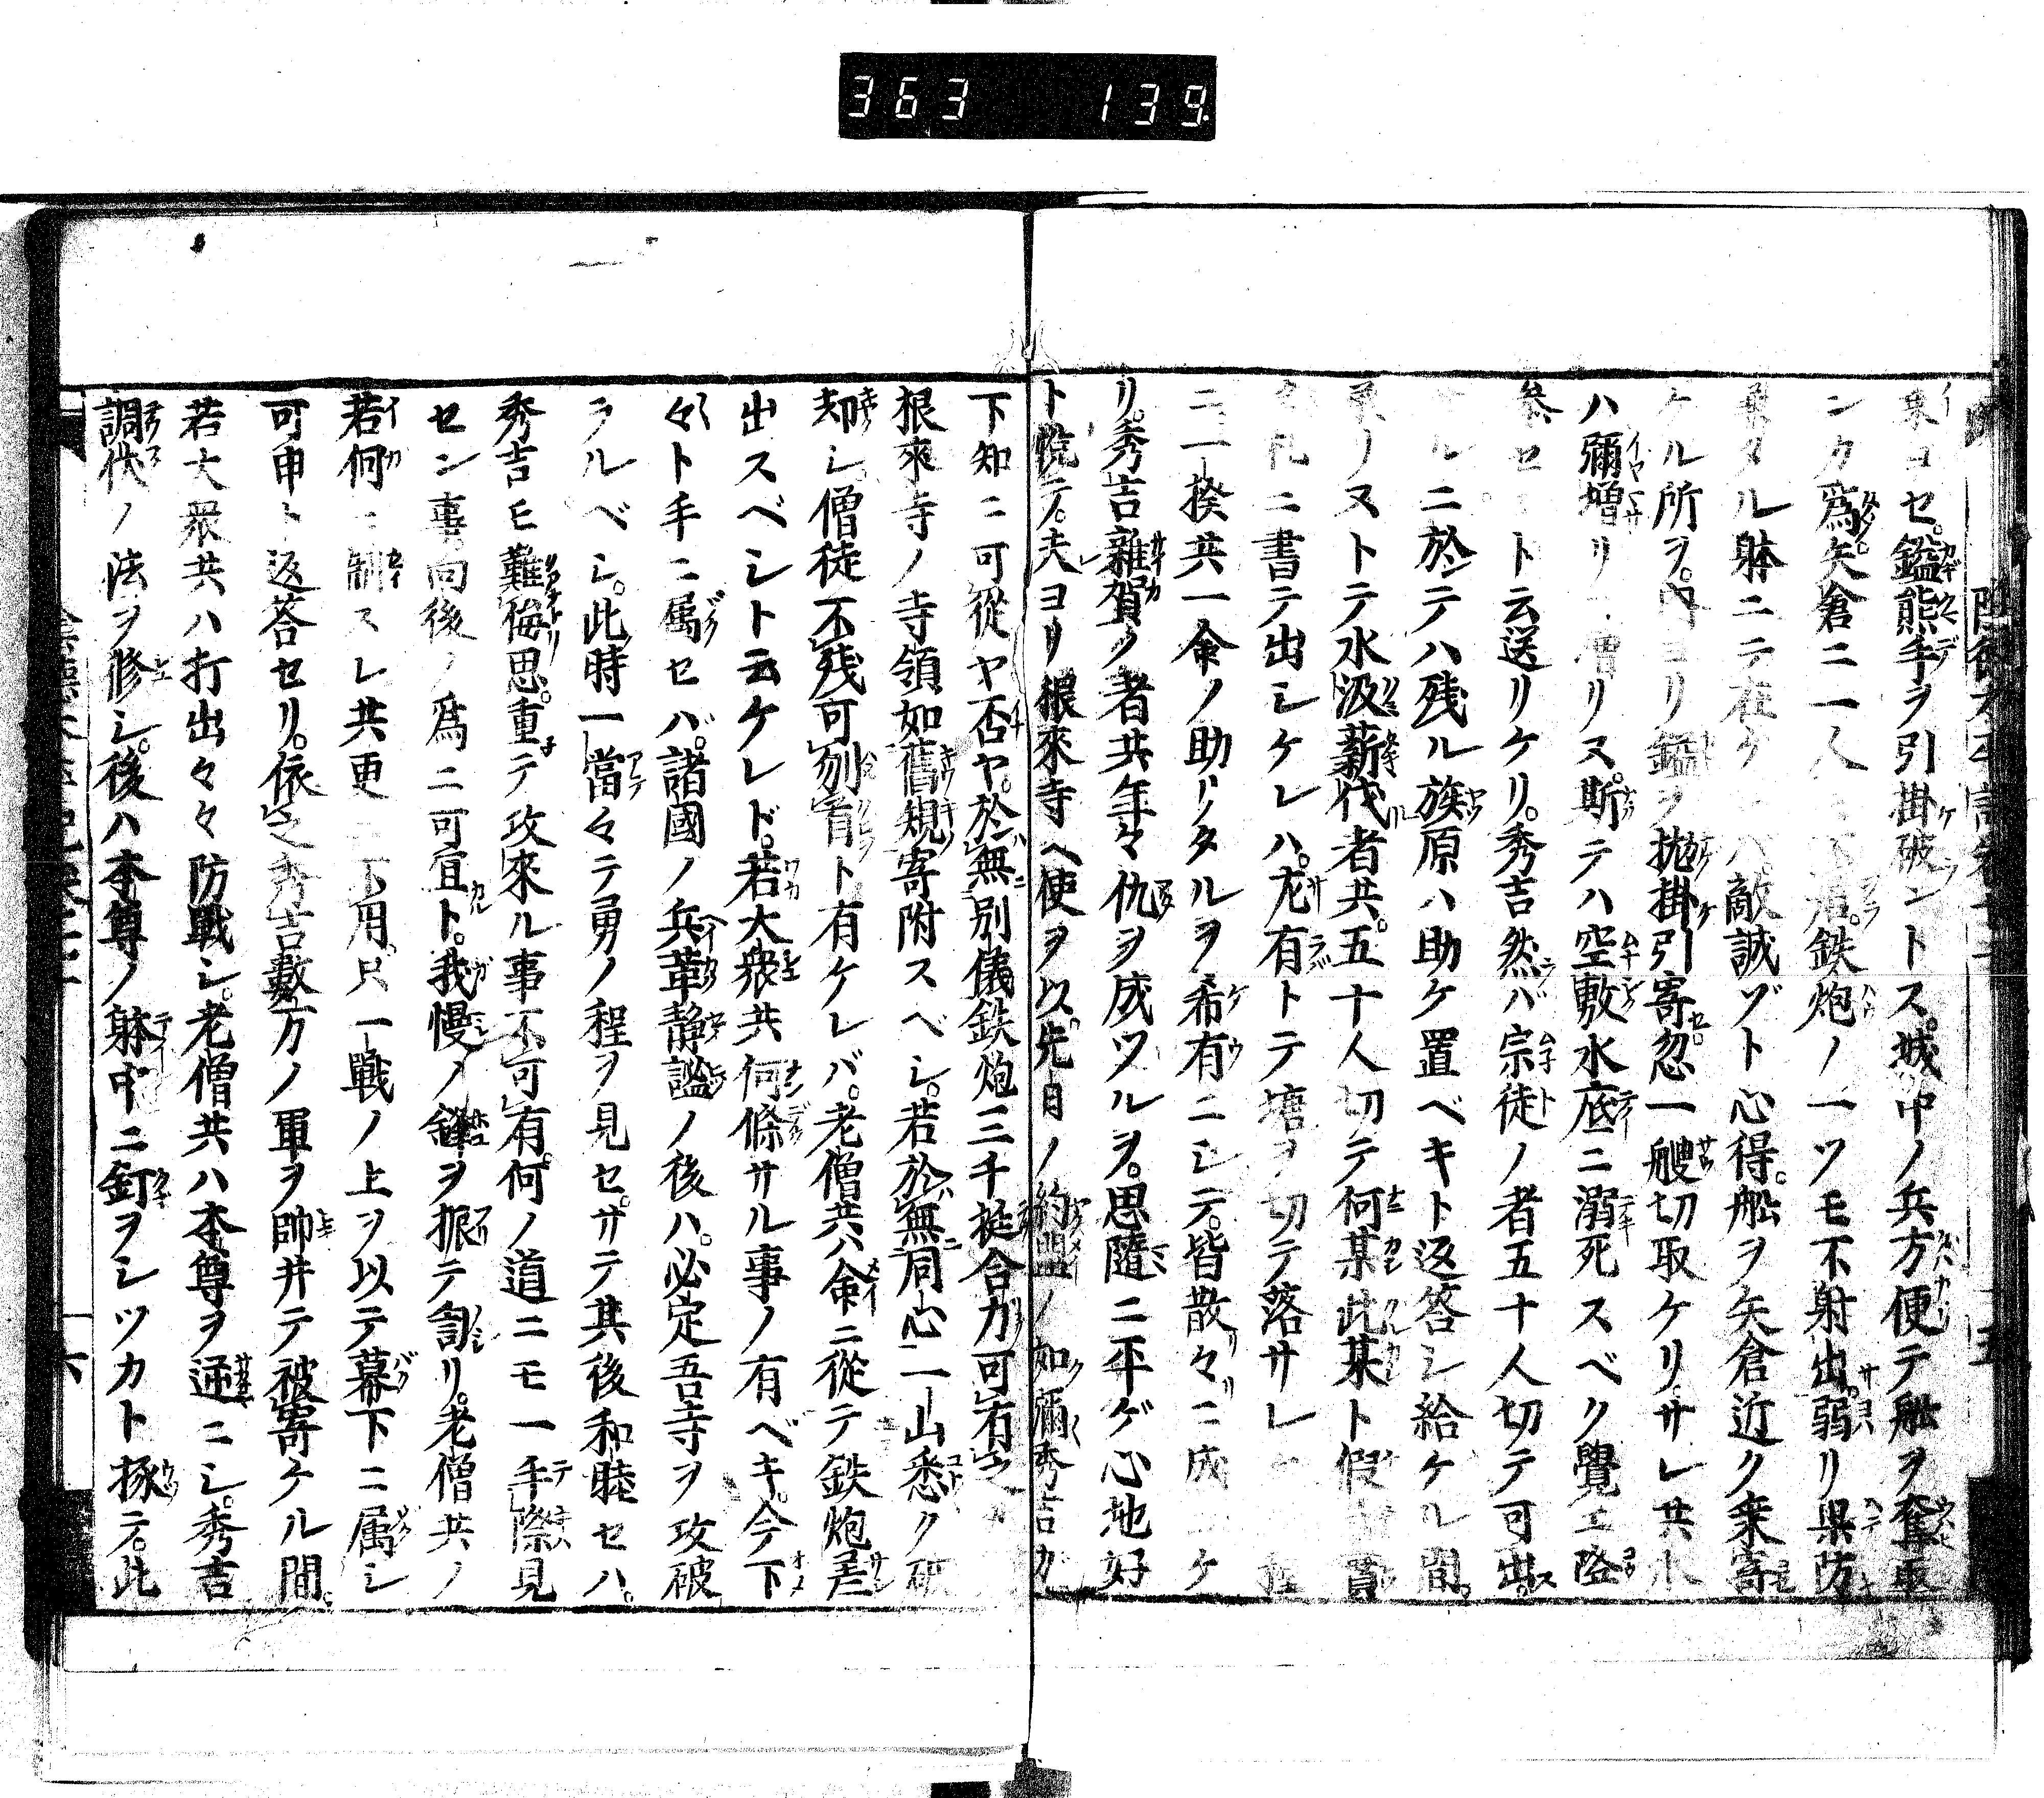 363 139
乗ヨセ。鑓熊手ヲ引掛破ントス。城中ノ兵方便テ舩ヲ奪取
ンカ爲。矢倉ニ一人 不 。鉄炮ノ一ツモ不射出。弱リ果防
兼タル躰ニテ在ケ バ。敵誠ゾト心得。舩ヲ矢倉近ク乗寄
ケル所ヲ。内ヨリ鑓ヲ抛掛引寄忽一艘切取ケリサレ共水
ハ彌増リ 増リヌ。斯テハ空敷水底ニ溺死スベク覺エ降
参セ ト云送リケリ。秀吉然バ宗徒ノ者五十人切テ可出。
ルニ於テハ残ル族原ハ助ケ置ベキト返答シ給ケル間。
ノヌトテ水汲薪伐者共。五十人切テ何某此某ト假
札ニ書テ出シケレハ。尤有トテ塘ヲ切テ落サレ
ニ一揆共一命ノ助リタルヲ希有ニシテ。皆散々ニ成 ケ
リ。秀吉雜賀ノ者共年々仇ヲ成ツルヲ。思隨ニ平ゲ心地好
ト悦テ。夫ヨリ根來寺ヘ使ヲ以。先日ノ約盟ノ如彌秀吉カ
下知ニ可從ヤ否ヤ。於無別儀鉄炮三千挺合力可有之
根來寺ノ寺領如舊規寄附スベシ。若於無同心一山悉ク破
却シ。僧徒不残可刎首ト有ケレバ。老僧共ハ命ニ從テ鉄炮差
出スベシト云ケレド。若大衆共何條サル事ノ有ベキ。今下
々ト手ニ属セバ。諸國ノ兵革静謐ノ後ハ。必定吾寺ヲ攻破
ラルベシ。此時一當々テ勇ノ程ヲ見セ。サテ其後和睦セハ。
秀吉モ難侮思。重テ攻來ル事不可有。何ノ道ニモ一手際見
セン事。向後ノ爲ニ可宜ト。我慢ノ鋒ヲ振テ訇リ。老僧共ノ
若何ニ制スレ共更ニ不用。只一戰ノ上ヲ以テ幕下ニ属シ
可申ト返荅セリ。依之秀吉數万ノ軍ヲ帥井テ被寄ケル間。
若大衆共ハ打出々々防戰シ。老僧共ハ本尊ヲ逆ニシ。秀吉
調伏ノ法ヲ修シ。後ハ本尊ノ躰中ニ釘ヲシツカト椓テ。此
六